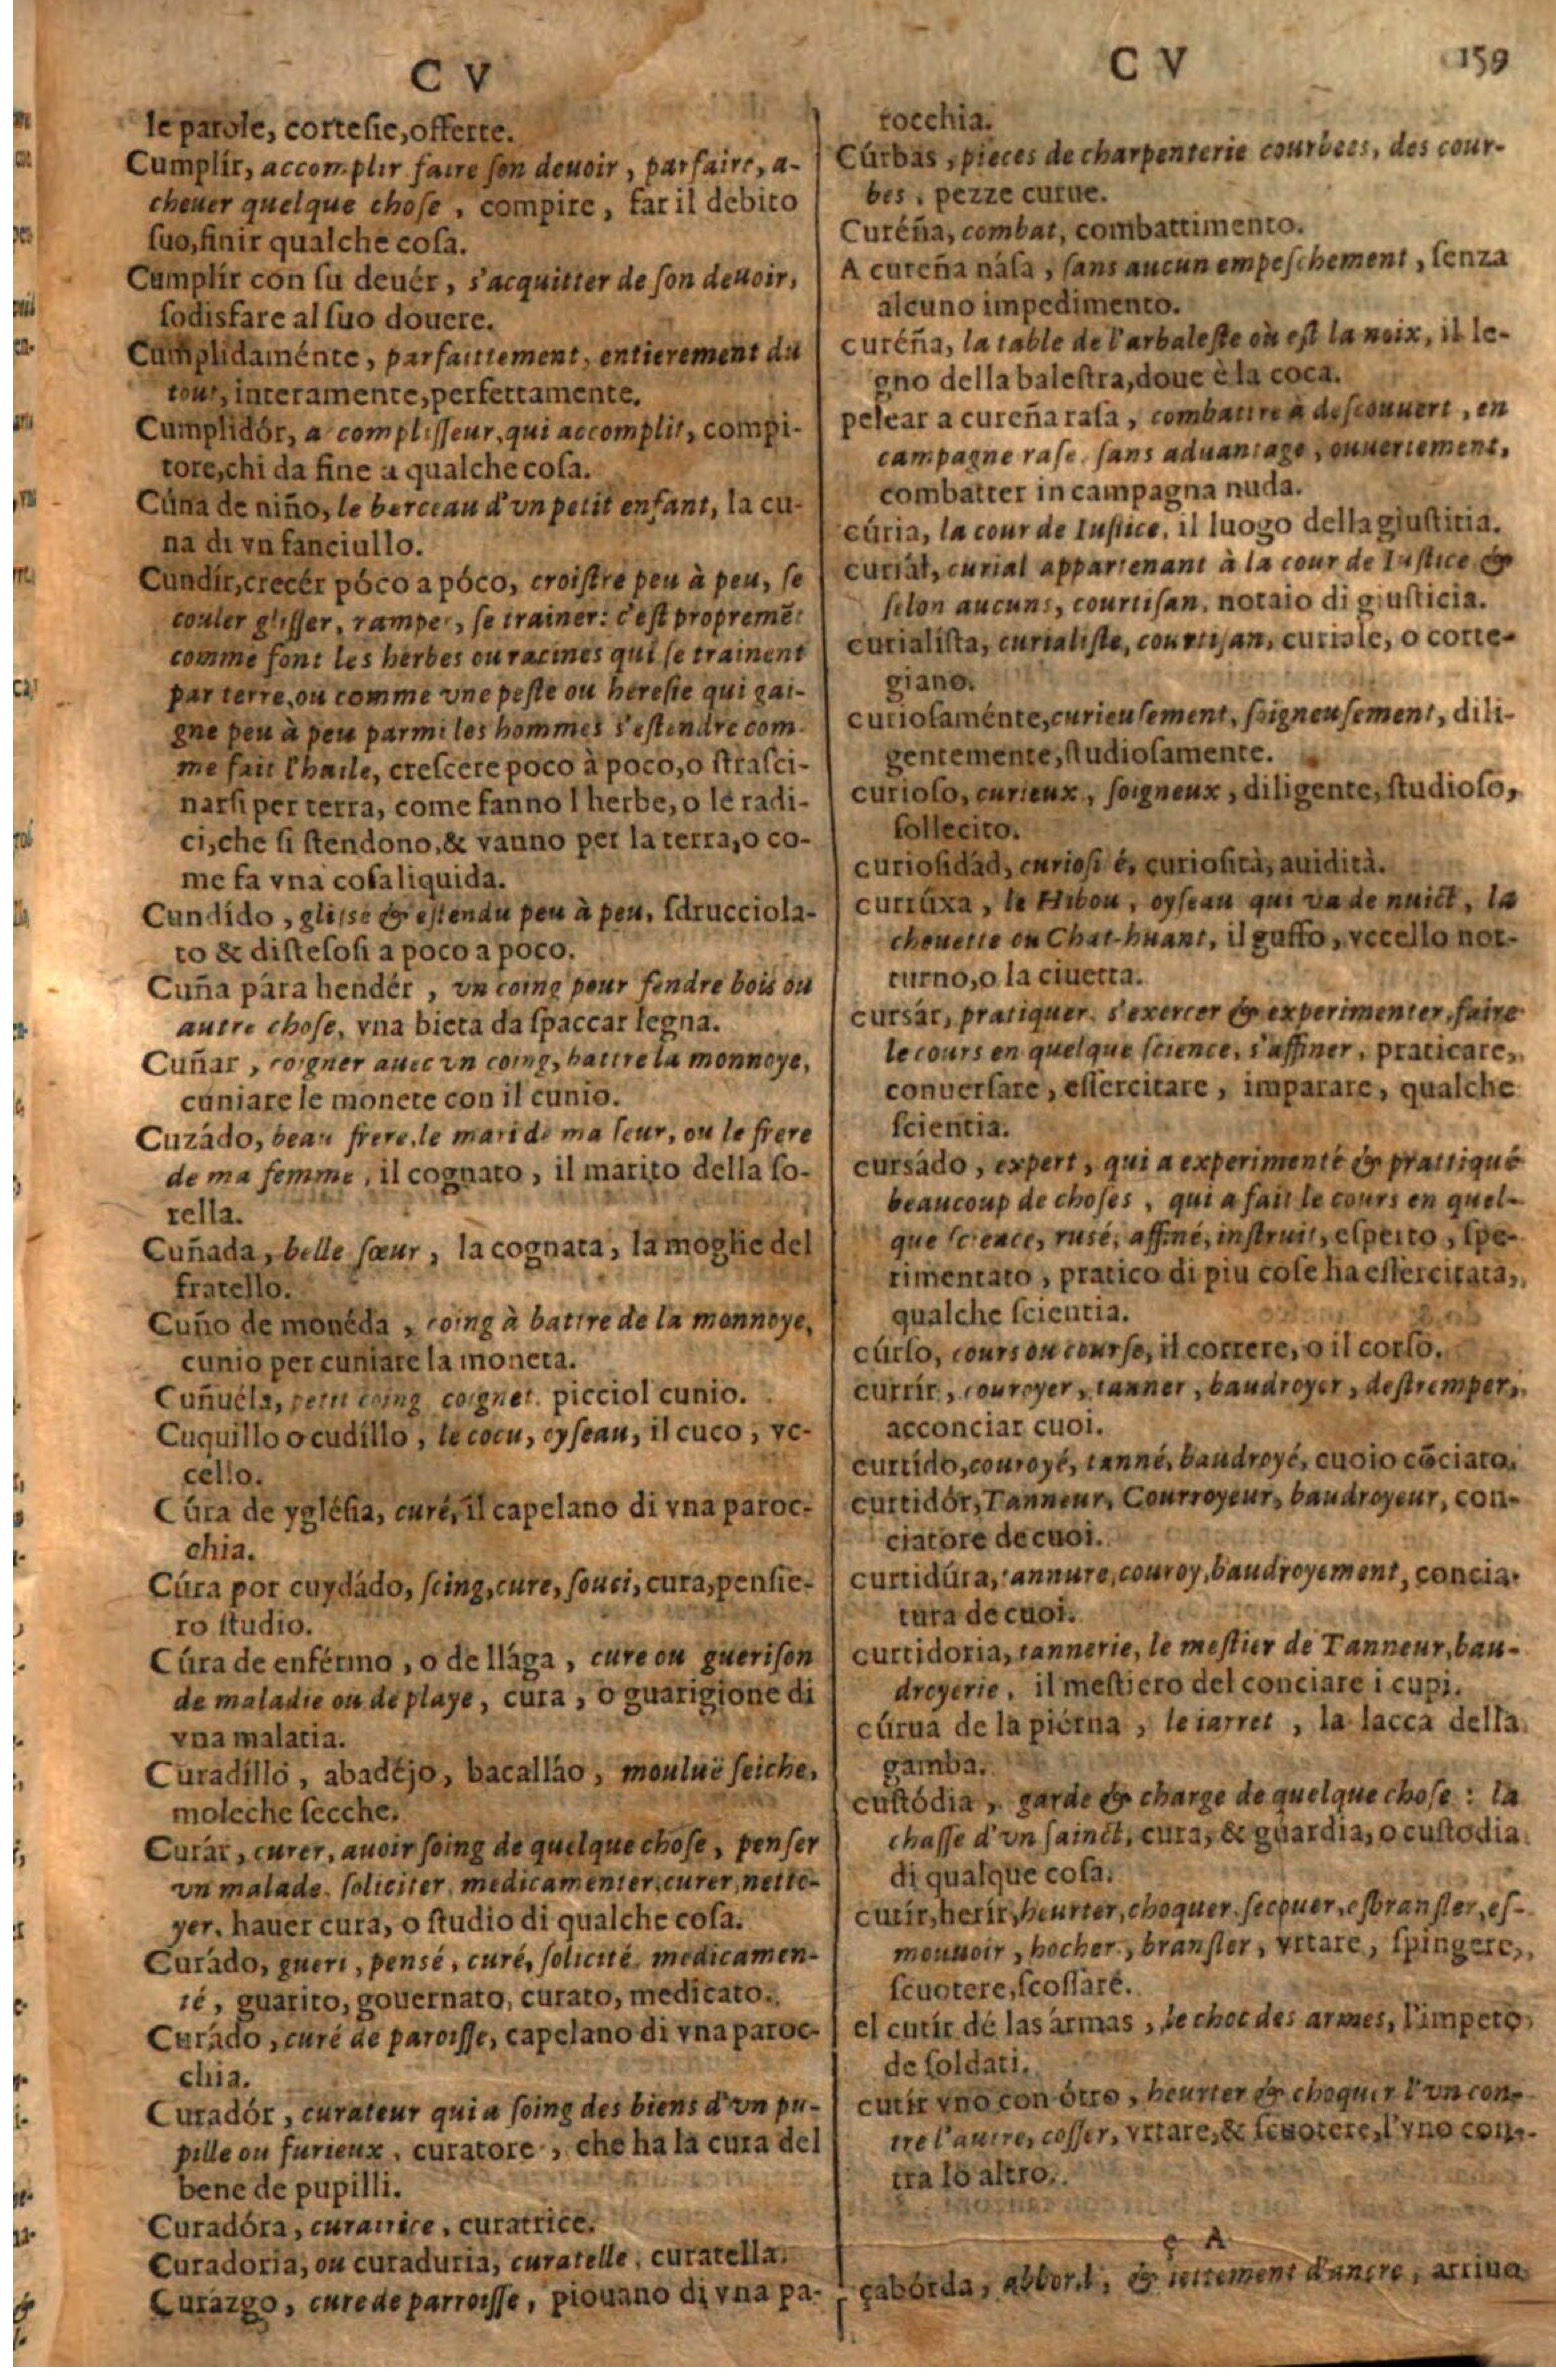 C V
le parole, cortesie, offerte.
Cumplír, accomplir faire son deuoir, parfaire, a-
cheuer quelque chose, compire, far il debito
suo, finir qualche cosa.
Cumplír con su deuér, s'acquitter de son deuoir,
sodisfare al suo douere.
Cumplidaménte, parfaittement, entierement du
tout, interamente, perfettamente.
Cumplidór, a complisseur, qui accomplit, compi-
tore, chi da fine a qualche cosa.
Cúna de niño, le berceau d'vn petit enfant, la cu-
na di vn fanciullo.
Cundír, crecér póco a póco, croistre peu à peu, se
couler glisser, ramper, se trainer: c'est propremẽt
comme font les herbes ou racines qui se trainent
par terre, ou comme vne peste ou heresie qui gai-
gne peu à peu parmi les hommes s'estendre com-
me fait l'huile, crescere poco à poco, o strasci-
narsi per terra, come fanno l herbe, o le radi-
ci, che si stendono, & vanno per la terra, o co-
me fa vna cosa liquida.
Cundído, glissé & estendu peu à peu, sdrucciola-
to & distesosi a poco a poco.
Cuña pára hendér, vn coing pour fendre bois ou
autre chose, vna bieta da spaccar legna.
Cuñar, coigner auec vn coing, battre la monnoye,
cuniare le monete con il cunio.
Cuzádo, beau frere, le mari de ma seur, ou le frere
de ma femme, il cognato, il marito della so-
rella.
Cuñada, belle sœur, la cognata, la moglie del
fratello.
Cuño de monéda, coing à battre de la monnoye,
cunio per cuniare la moneta.
Cuñuéla, petit coing coignet. picciol cunio.
Cuquillo o cudíllo, le cocu, oyseau, il cuco, vc-
cello.
Cúra de yglésia, curé, il capelano di vna paroc-
chia.
Cúra por cuydádo, scing, cure, souci, cura, pensie-
ro studio.
Cúra de enférmo, o de llága, cure ou guerison
de maladie ou de playe, cura, o guarigione di
vna malatia.
Curadílló, abadéjo, bacalláo, mouluë seiche,
moleche secche.
Curár, curer, auoir soing de quelque chose, penser
vn malade. soliciter, medicamenter, curer, nette-
yer, hauer cura, o studio di qualche cosa.
Curádo, gueri, pensé, curé, solicité, medicamen-
té, guarito, gouernato, curato, medicato.
Curádo, curé de paroisse, capelano di vna paroc-
chia.
Curadór, curateur qui a soing des biens d'vn pu-
pille ou furieux, curatore, che ha la cura del
bene de pupilli.
Curadóra, curatrice, curatrice.
Curadoria, ou curaduria, curatelle, curatella.
Curázgo, cure de parroisse, piouano di vna pa-
C V 159
rocchia.
Cúrbas, pieces de charpenterie courbees, des cour-
bes, pezze curue.
Curéña, combat, combattimento.
A cureña nása, sans aucun empeschement, senza
alcuno impedimento.
curéña, la table de l'arbaleste où est la noix, il le-
gno della balestra, doue è la coca.
pelear a cureña rasa, combattre à descouuert, en
campagne rase, sans aduantage, ouuertement,
combatter in campagna nuda.
cúria, la cour de Iustice, il luogo della giustitia.
curiál, curial appartenant à la cour de Iustice &
selon aucuns, courtisan, notaio di giusticia.
curialísta, curialiste, courtisan, curiale, o corte-
giano.
curiosaménte, curieusement, soigneusement, dili-
gentemente, studiosamente.
curioso, curieux, soigneux, diligente, studioso,
sollecito.
curiosidád, curiosi é, curiosità, auidità.
currúxa, le Hibou, oyseau qui va de nuict, la
chouette ou Chat-huant, il guffo, vccello not-
turno, o la ciuetta.
cursár, pratiquer, s'exercer & experimenter, faire
le cours en quelque science, s'affiner, praticare,
conuersare, essercitare, imparare, qualche
scientia.
cursádo, expert, qui a experimenté & prattiqué
beaucoup de choses, qui a fait le cours en quel-
que science, rusé, affiné, instruit, esperto, spe-
rimentato, pratico di piu cose ha essercitata,
qualche scientia.
cúrso, cours ou course, il correre, o il corso.
currír, couroyer, tanner, baudroyer, destremper,
acconciar cuoi.
curtído, couroyé, tanné, baudroyé, cuoio cõciato.
curtidór, Tanneur, Courroyeur, baudroyeur, con-
ciatore de cuoi.
curtidúra, tannure, couroy, baudroyement, concia-
tura de cuoi.
curtidoria, tannerie, le mestier de Tanneur, bau-
droyerie, il mestiero del conciare i cupi.
cúrua de la piérna, le iarret, la lacca della
gamba.
custódia, garde & charge de quelque chose: la
chasse d'vn sainct, cura, & guardia, o custodia
di qualque cosa.
cutír, herír, heurter, choquer, secouer, esbransler, es-
mouuoir, hocher, bransler, vrtare, spingere,
scuotere, scossare.
el cutír dé las ármas, le choc des armes, l'impeto
de soldati.
cutír vno con ótro, heurter & choquer l'vn con-
tre l'autre, cosser, vrtare, & scuotere, l'vno con-
tra lo altro.
ç A
çabórda, abbord, & iettement d'ancre, arriua